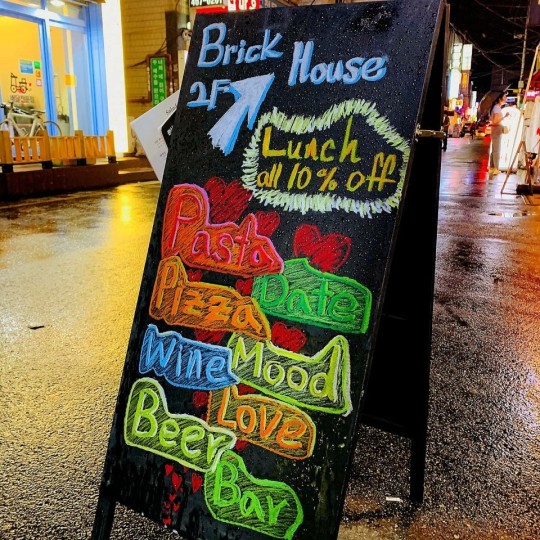 Brick House
2F
Lunch
all 10% off
Pasta
Date
Pizza
Mood
Wine
Love
Beer
Bar